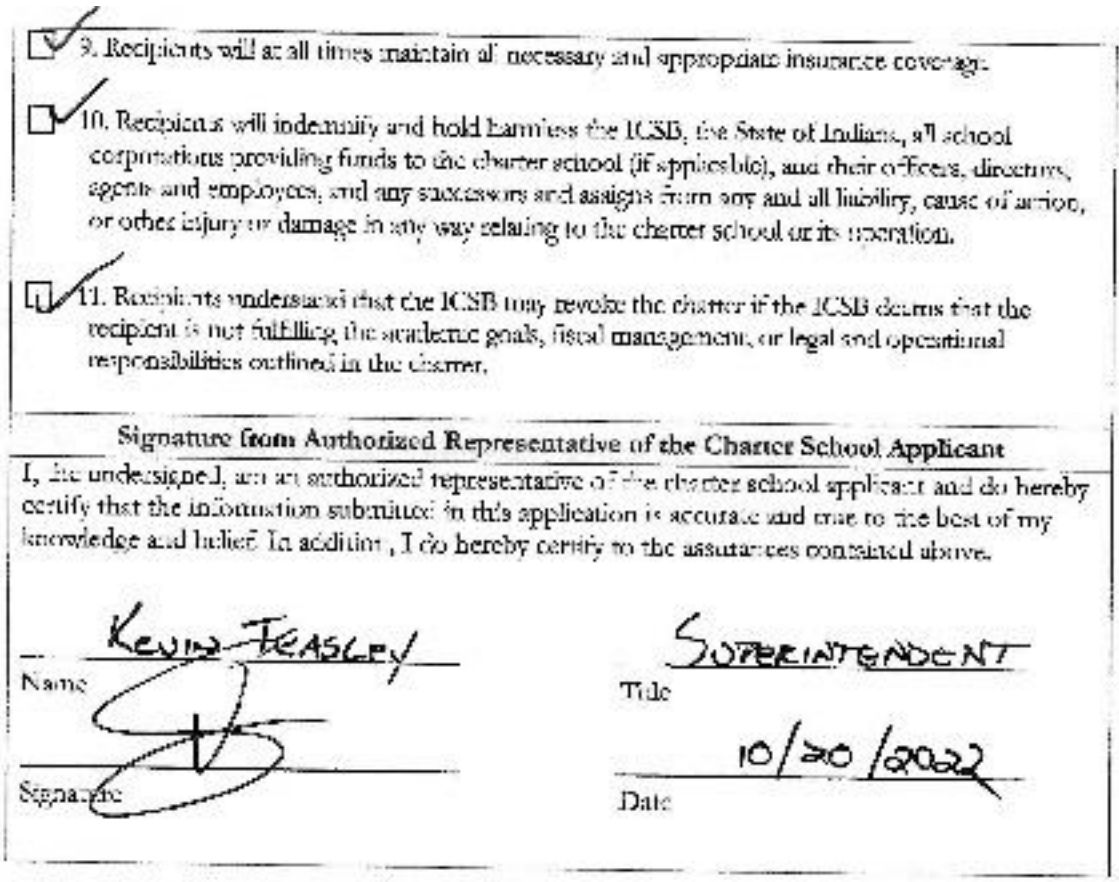 9. Recipients will at all times maintain all necessary and appropriate insurance coverage.
10. Recipients will indemnify and hold harmless the ICSB, the State of Indiana, all school
corporations providing funds to the charter school (if applicable), and their officers, directors,
agents and employees, and any successors and assigns from any and all liability, cause of action,
or other injury or damage in any way relating to the charter school or its operation.
11. Recipients understand that the ICSB may revoke the charter if the ICSB deems that the
recipient is not fulfilling the academic goals, fiscal management, or legal and operational
responsibilities outlined in the charter.
Signature from Authorized Representative of the Charter School Applicant
I, the undersigned, am an authorized representative of the charter school applicant and do hereby
certify that the information submitted in this application is accurate and true to the best of my
knowledge and belief. In addition, I do hereby certify to the assurances contained above.
KEVIN TEASLEY SUPERINTENDENT
Name Title
10/20/2022
Signature Date